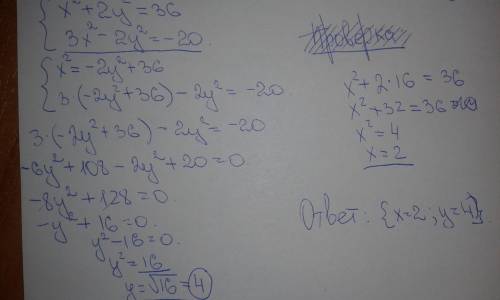 x²+2y²=36
3x²-2y²=-20
x²=-2y²+36
3·(-2y²+36)-2y²=-20
3·(-2y²+36)-2y²=-20
-6y²+108-2y²+20=0
-8y²+128=0
-y²+16=0
y²-16=0
y²=16
y=√16=4
Проверка
x²+2·16=36
x²+32=36
x²=4
x=2
Ответ: {x=2; y=4}